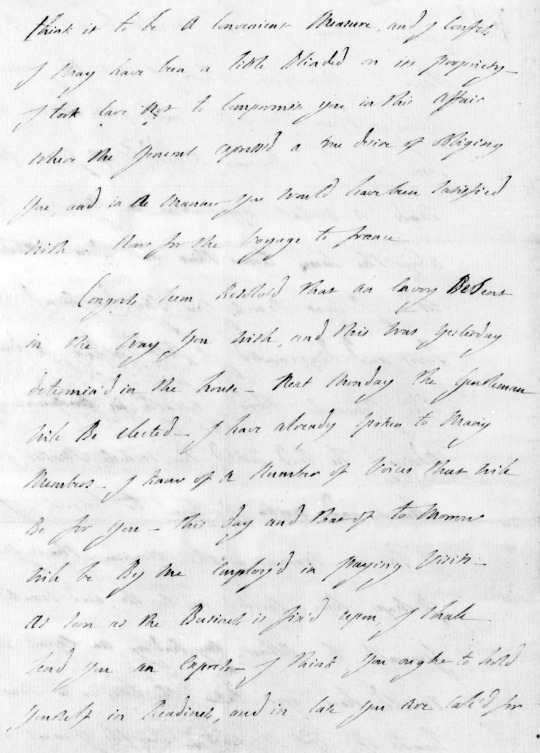 think it to be a Convenient Measure, and I Confess
I may have been a little Blinded on its propriety—
I took Care Not to Compromise you in this affair
where the General express'd a true desire of obliging
You, and in the Manner you would have been Satisfied
with — Now for the Voyage to france
Congress seem Resolved that an Envoy Be Sent
in the way you wish, and this was yesterday
determin'd in the house — Next Monday the Gentleman
will Be Elected — I have already spoken to Many
Members — I know of a Number of Voices that will
Be for you — this day and that of to Morrow
will be By me employ'd in paying Visits —
As soon as the Business is fix'd upon, I shall
send you an Express — I think you ought to hold
Yourself in Readiness, and in Case you are Call'd for